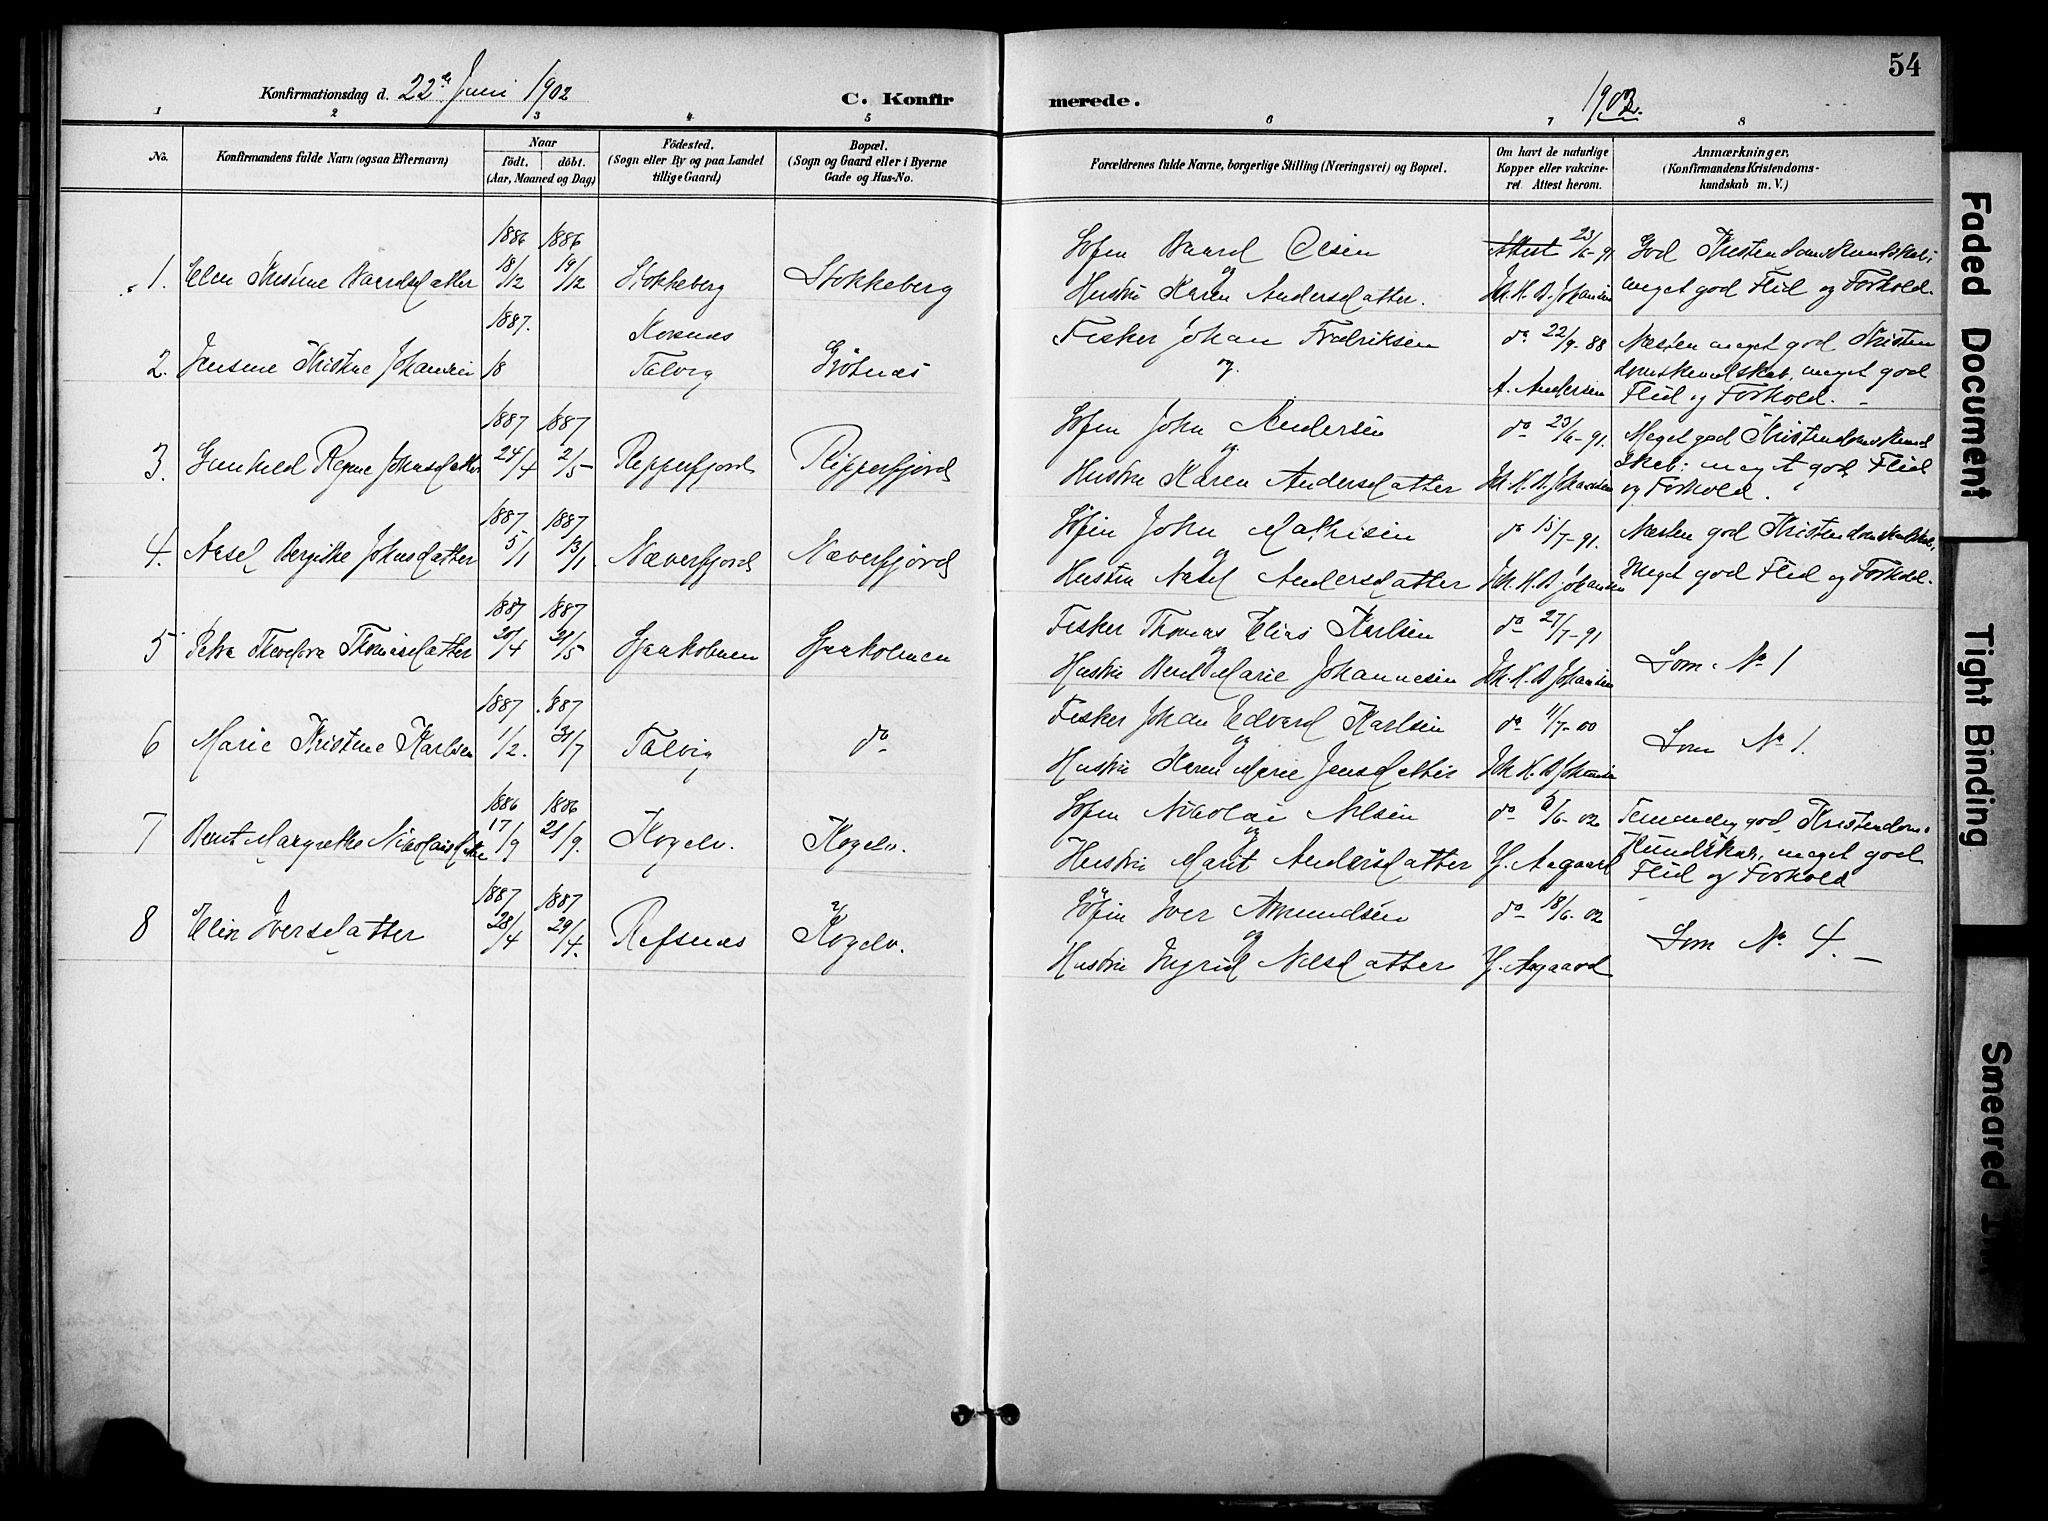 54
Konfirmationsdag d. 22de Juni 1902
C. Konfir merede.
1902.
1 2 3 4 5 6 7 8
No.
Konfirmandens fulde Navn (ogsaa Efternavn)
Naar
födt. döbt.
(Aar, Maaned og Dag)
Födested.
(Sogn eller By og paa Landet
tillige Gaard)
Bopæl.
(Sogn og Gaard eller i Byerne
Gade og Hus-No.
Forældrenes fulde Navne, borgerlige Stilling (Næringsvei) og Bopæl.
Om havt de naturlige
Kopper eller vakcine-
ret. Attest herom.
Anmærkninger.
(Konfirmandens Kristendoms-
kundskab m. V.)
1886 1886
1. Elen Kristine Baardsdatter 18/12 19/12 Stokkeberg Stokkeberg
Søfin Baard Olsen
og
Hustru Karen Andersdatter.
Attest 23/6-91
Joh. H. B. Johansen
God Kristendomskundskab;
meget god Flid og Forhold.
1887.
2. Jensine Kristine Johansen 18 Korsnes
Talvig
Fisker Johan Fredriksen
og
do 22/9-88
A. Andersen
Næsten meget god Kristen
domskundskab, meget god
Flid og Forhold. -
1887 1887
3. Gunhild Regine Johnsdatter 24/4 2/5 Repperfjord Repperfjord
Søfin John Andersen
og
Hustru Karen Andersdatter
do 23/6-91.
Joh. H. B. Johansen
Meget god Kristendomskund
skab; meget god Flid
og Forhold.
1887 1887
4. Aasel Bergithe Johnsdatter 5/1 13/1 Næverfjord Næverfjord
Søfin John Mathisen
og
Hustru Aasel Andersdatter
do 15/7-91.
Joh. H. B. Johansen
Næsten god Kristendomskundskab,
Meget god Flid og Forhold.
1887 1887
5 Petra Theodora Thomasdatter 20/4 31/5
Fisker Thomas Elias Karlsen
og
Hustru Berit Marie Johannesen
do 27/7-91
Joh. H. B. Johansen
Som No 1
1887 1887
6 Marie Kristine Karlsen 1/2. 31/7 Talvig do
Fisker Johan Edvard Karlsen
og
Hustru Karen Marie Jensdatter
do 11/7-00
Joh. H. B. Johansen
Som No 1.
1886 1886
7 Berit Margrethe Nikolaisdatter 17/9 21/9. Kogelv. Kogelv.
Søfin Nikolai Nilsen
og
Hustru Marit Andersdatter
do 6/6-02
H. Aagaard
Temmelig god Kristendoms-
kundskab, meget god
Flid og Forhold
1887 1887
8 Elin Iversdatter 28/4 29/4. Refsnes Kogelv.
Søfin Iver Amundsen
og
Hustru Ingrid Nilsdatter
do 18/6-02
H. Aagaard
Som No 4. -
Faded Document
Tight Binding
Smeared